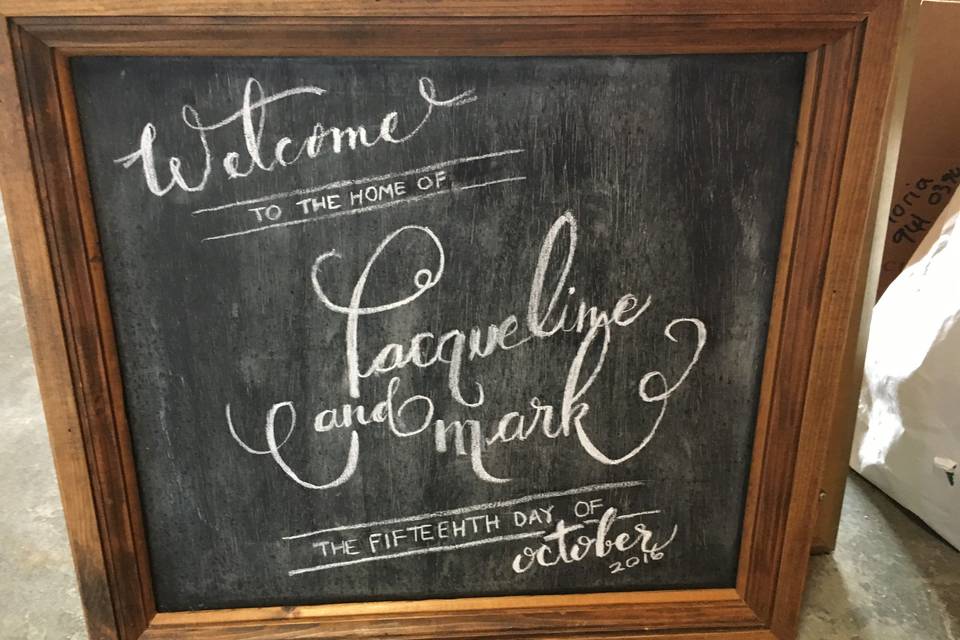 Welcome
TO THE HOME OF
Jacqueline
and mark
THE FIFTEEHTH DAY OF
october
2016
toria